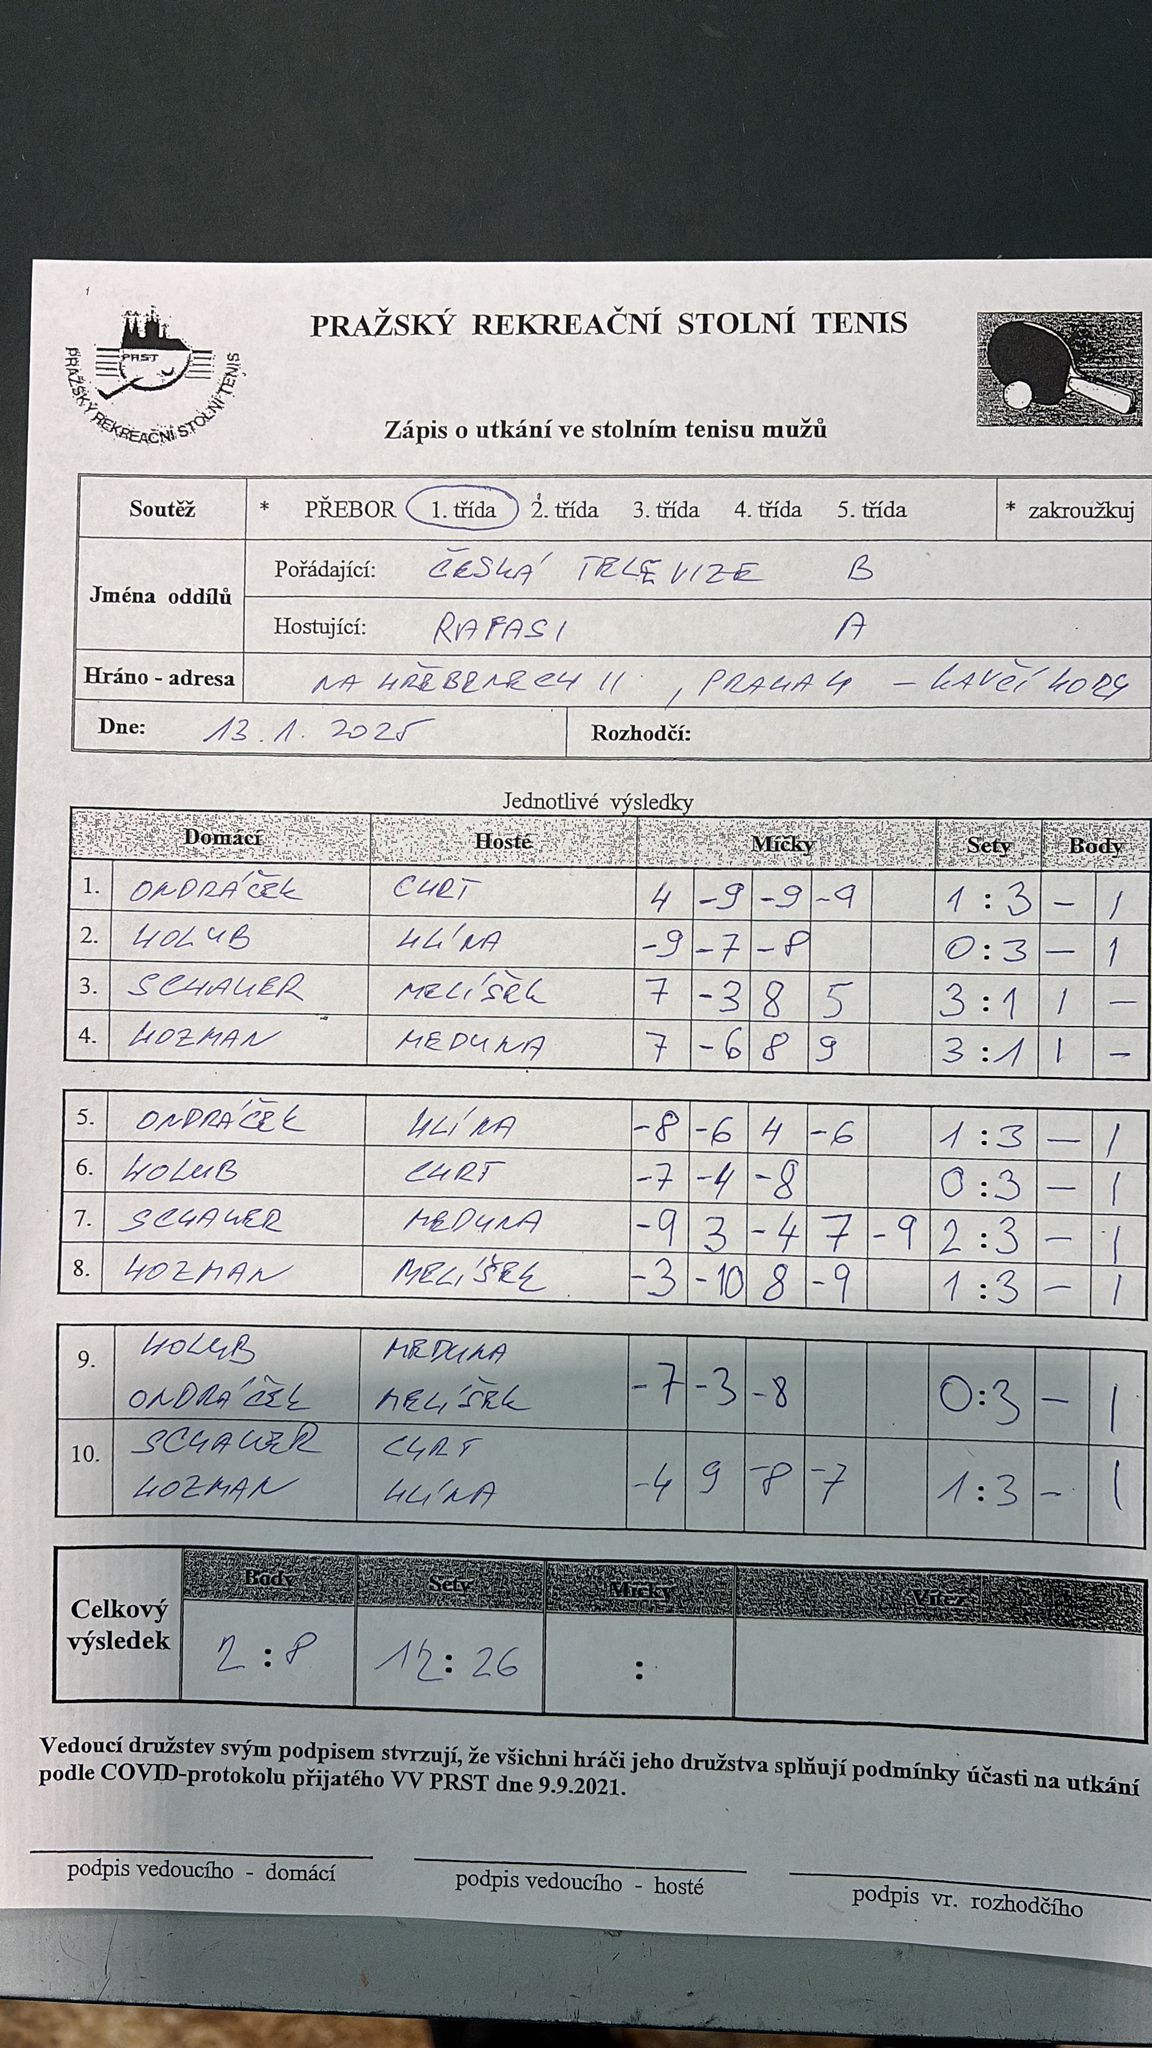 PRAŽSKÝ REKREAČNÍ STOLNÍ TENIS
PRST
PRAŽSKÝ REKREAČNÍ STOLNÍ TENIS
Zápis o utkání ve stolním tenisu mužů
Soutěž * PŘEBOR 1. třída 2. třída 3. třída 4. třída 5. třída * zakroužkuj
Jména oddílů
Pořádající: ČESKÁ TELEVIZE B
Hostující: RAFASI A
Hráno - adresa NA HŘEBENECH II, PRAHA 4 - KAVČÍ HORY
Dne: 13.1.2025 Rozhodčí:
Jednotlivé výsledky
Domácí Hosté Míčky Sety Body
1. ONDRÁČEK CHRT 4 -9 -9 -9 1:3 - 1
2. HOLUB HLÍNA -9 -7 -8 0:3 - 1
3. SCHAUER MELÍŠEK 7 -3 8 5 3:1 1 -
4. HOZMAN MEDUNA 7 -6 8 9 3:1 1 -
5. ONDRÁČEK HLÍNA -8 -6 4 -6 1:3 - 1
6. HOLUB CHRT -7 -4 -8 0:3 - 1
7. SCHAUER MEDUNA -9 3 -4 7 -9 2:3 - 1
8. HOZMAN MELÍŠEK -3 -10 8 -9 1:3 - 1
9. HOLUB MEDUNA
ONDRÁČEK MELÍŠEK -7 -3 -8 0:3 - 1
10. SCHAUER CHRT
HOZMAN HLÍNA -4 9 -8 -7 1:3 - 1
Celkový výsledek
Body Sety Míčky Vítěz
2:8 12:26 :
Vedoucí družstev svým podpisem stvrzují, že všichni hráči jeho družstva splňují podmínky účasti na utkání
podle COVID-protokolu přijatého VV PRST dne 9.9.2021.
podpis vedoucího - domácí podpis vedoucího - hosté podpis vr. rozhodčího